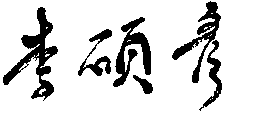 李硕彦